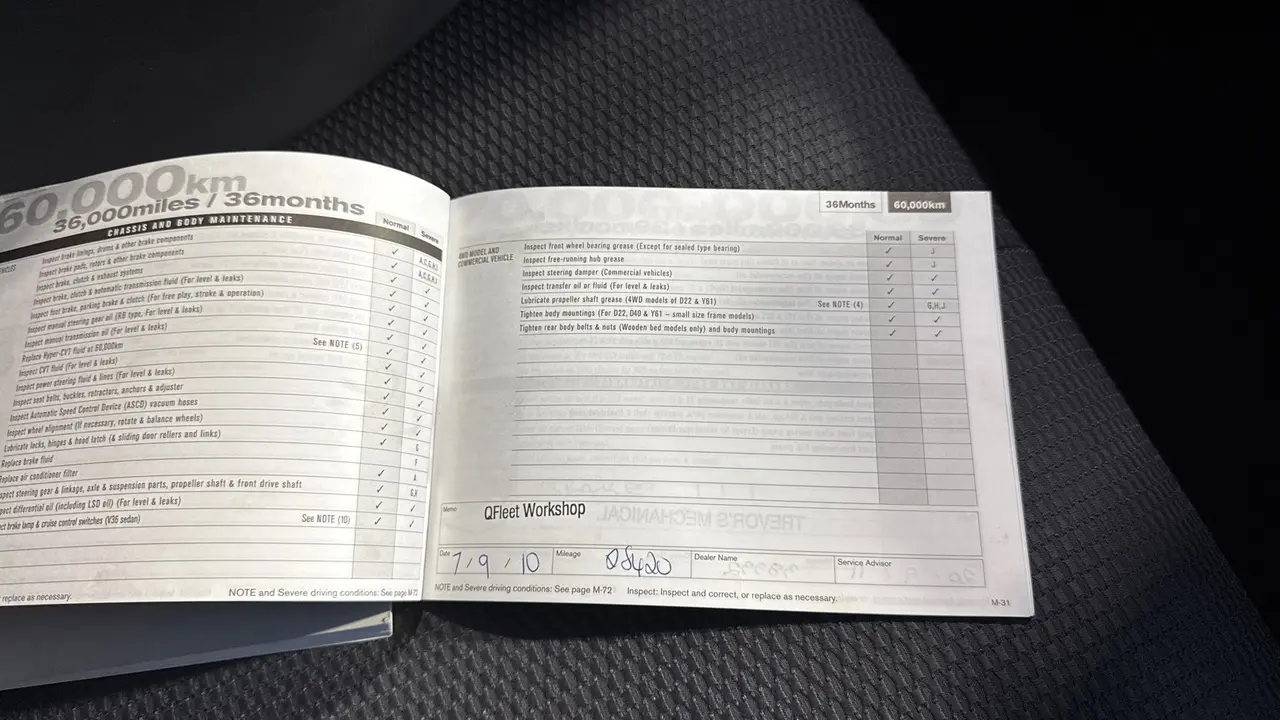 60,000km
36,000miles / 36months
CHASSIS AND BODY MAINTENANCE
Normal
Severe
Inspect brake linings, drums & other brake components ✓ A,C,G,H,I
Inspect brake pads, rotors & other brake components ✓ A,C,G,H,I
Inspect brake, clutch & exhaust systems ✓ ✓
Inspect brake, clutch & automatic transmission fluid (For level & leaks) ✓ ✓
Inspect foot brake, parking brake & clutch (For free play, stroke & operation) ✓ ✓
Inspect manual steering gear oil (RB type, For level & leaks) ✓ ✓
Inspect manual transmission oil (For level & leaks) ✓ ✓
Replace Hyper-CVT fluid at 60,000km See NOTE (5) ✓ ✓
Inspect CVT fluid (For level & leaks) ✓ ✓
Inspect power steering fluid & lines (For level & leaks) ✓ ✓
Inspect seat belts, buckles, retractors, anchors & adjuster ✓ ✓
Inspect Automatic Speed Control Device (ASCD) vacuum hoses ✓ ✓
Inspect wheel alignment (If necessary, rotate & balance wheels) ✓ ✓
Lubricate locks, hinges & hood latch (& sliding door rollers and links) ✓ G
Replace brake fluid F
Replace air conditioner filter ✓ A
spect steering gear & linkage, axle & suspension parts, propeller shaft & front drive shaft ✓ G,H
pect differential oil (including LSD oil) (For level & leaks) ✓ ✓
ct brake lamp & cruise control switches (V36 sedan) See NOTE (10) ✓ ✓
replace as necessary.
NOTE and Severe driving conditions: See page M-72
36Months 60,000km
Normal Severe
4WD MODEL AND
COMMERCIAL VEHICLE
Inspect front wheel bearing grease (Except for sealed type bearing) ✓ J
Inspect free-running hub grease ✓ J
Inspect steering damper (Commercial vehicles) ✓ ✓
Inspect transfer oil or fluid (For level & leaks) ✓ ✓
Lubricate propeller shaft grease (4WD models of D22 & Y61) See NOTE (4) ✓ G,H,J
Tighten body mountings (For D22, D40 & Y61 – small size frame models) ✓ ✓
Tighten rear body bolts & nuts (Wooden bed models only) and body mountings ✓ ✓
Memo
QFleet Workshop
TREVOR'S MECHANICAL
Date 7 / 9 / 10 Mileage 28420 Dealer Name Service Advisor
NOTE and Severe driving conditions: See page M-72 Inspect: Inspect and correct, or replace as necessary.
M-31